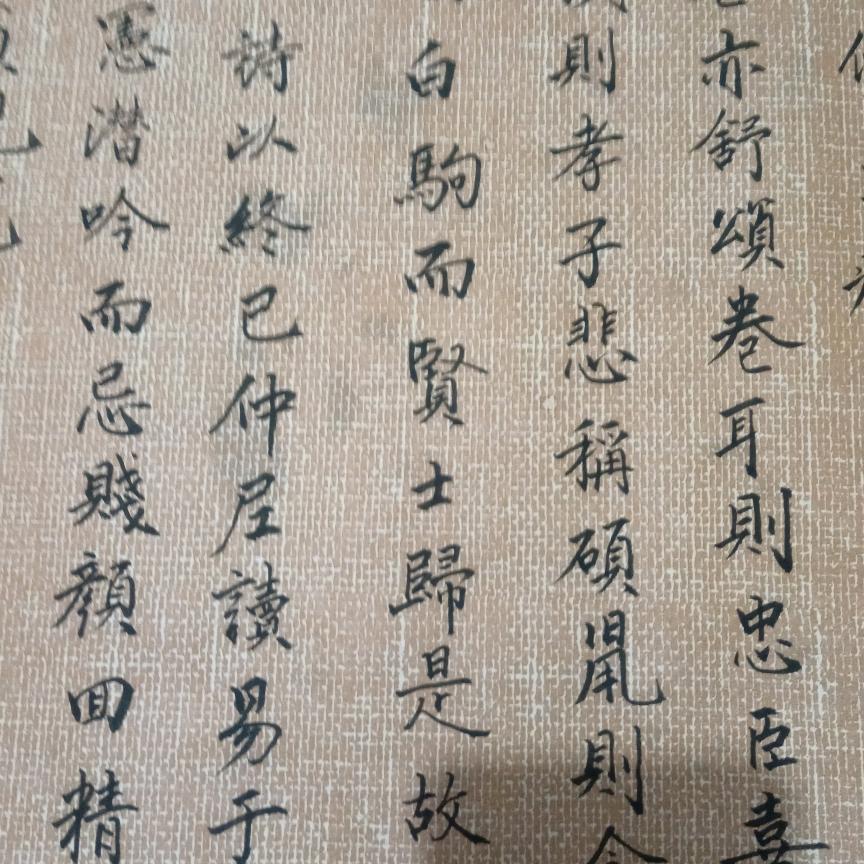 亦舒頌卷耳則忠臣喜
則孝子悲稱碩鼠則
白駒而賢士歸是故
詩以終已仲尼讀易于
憑潜吟而忌賤顏回精